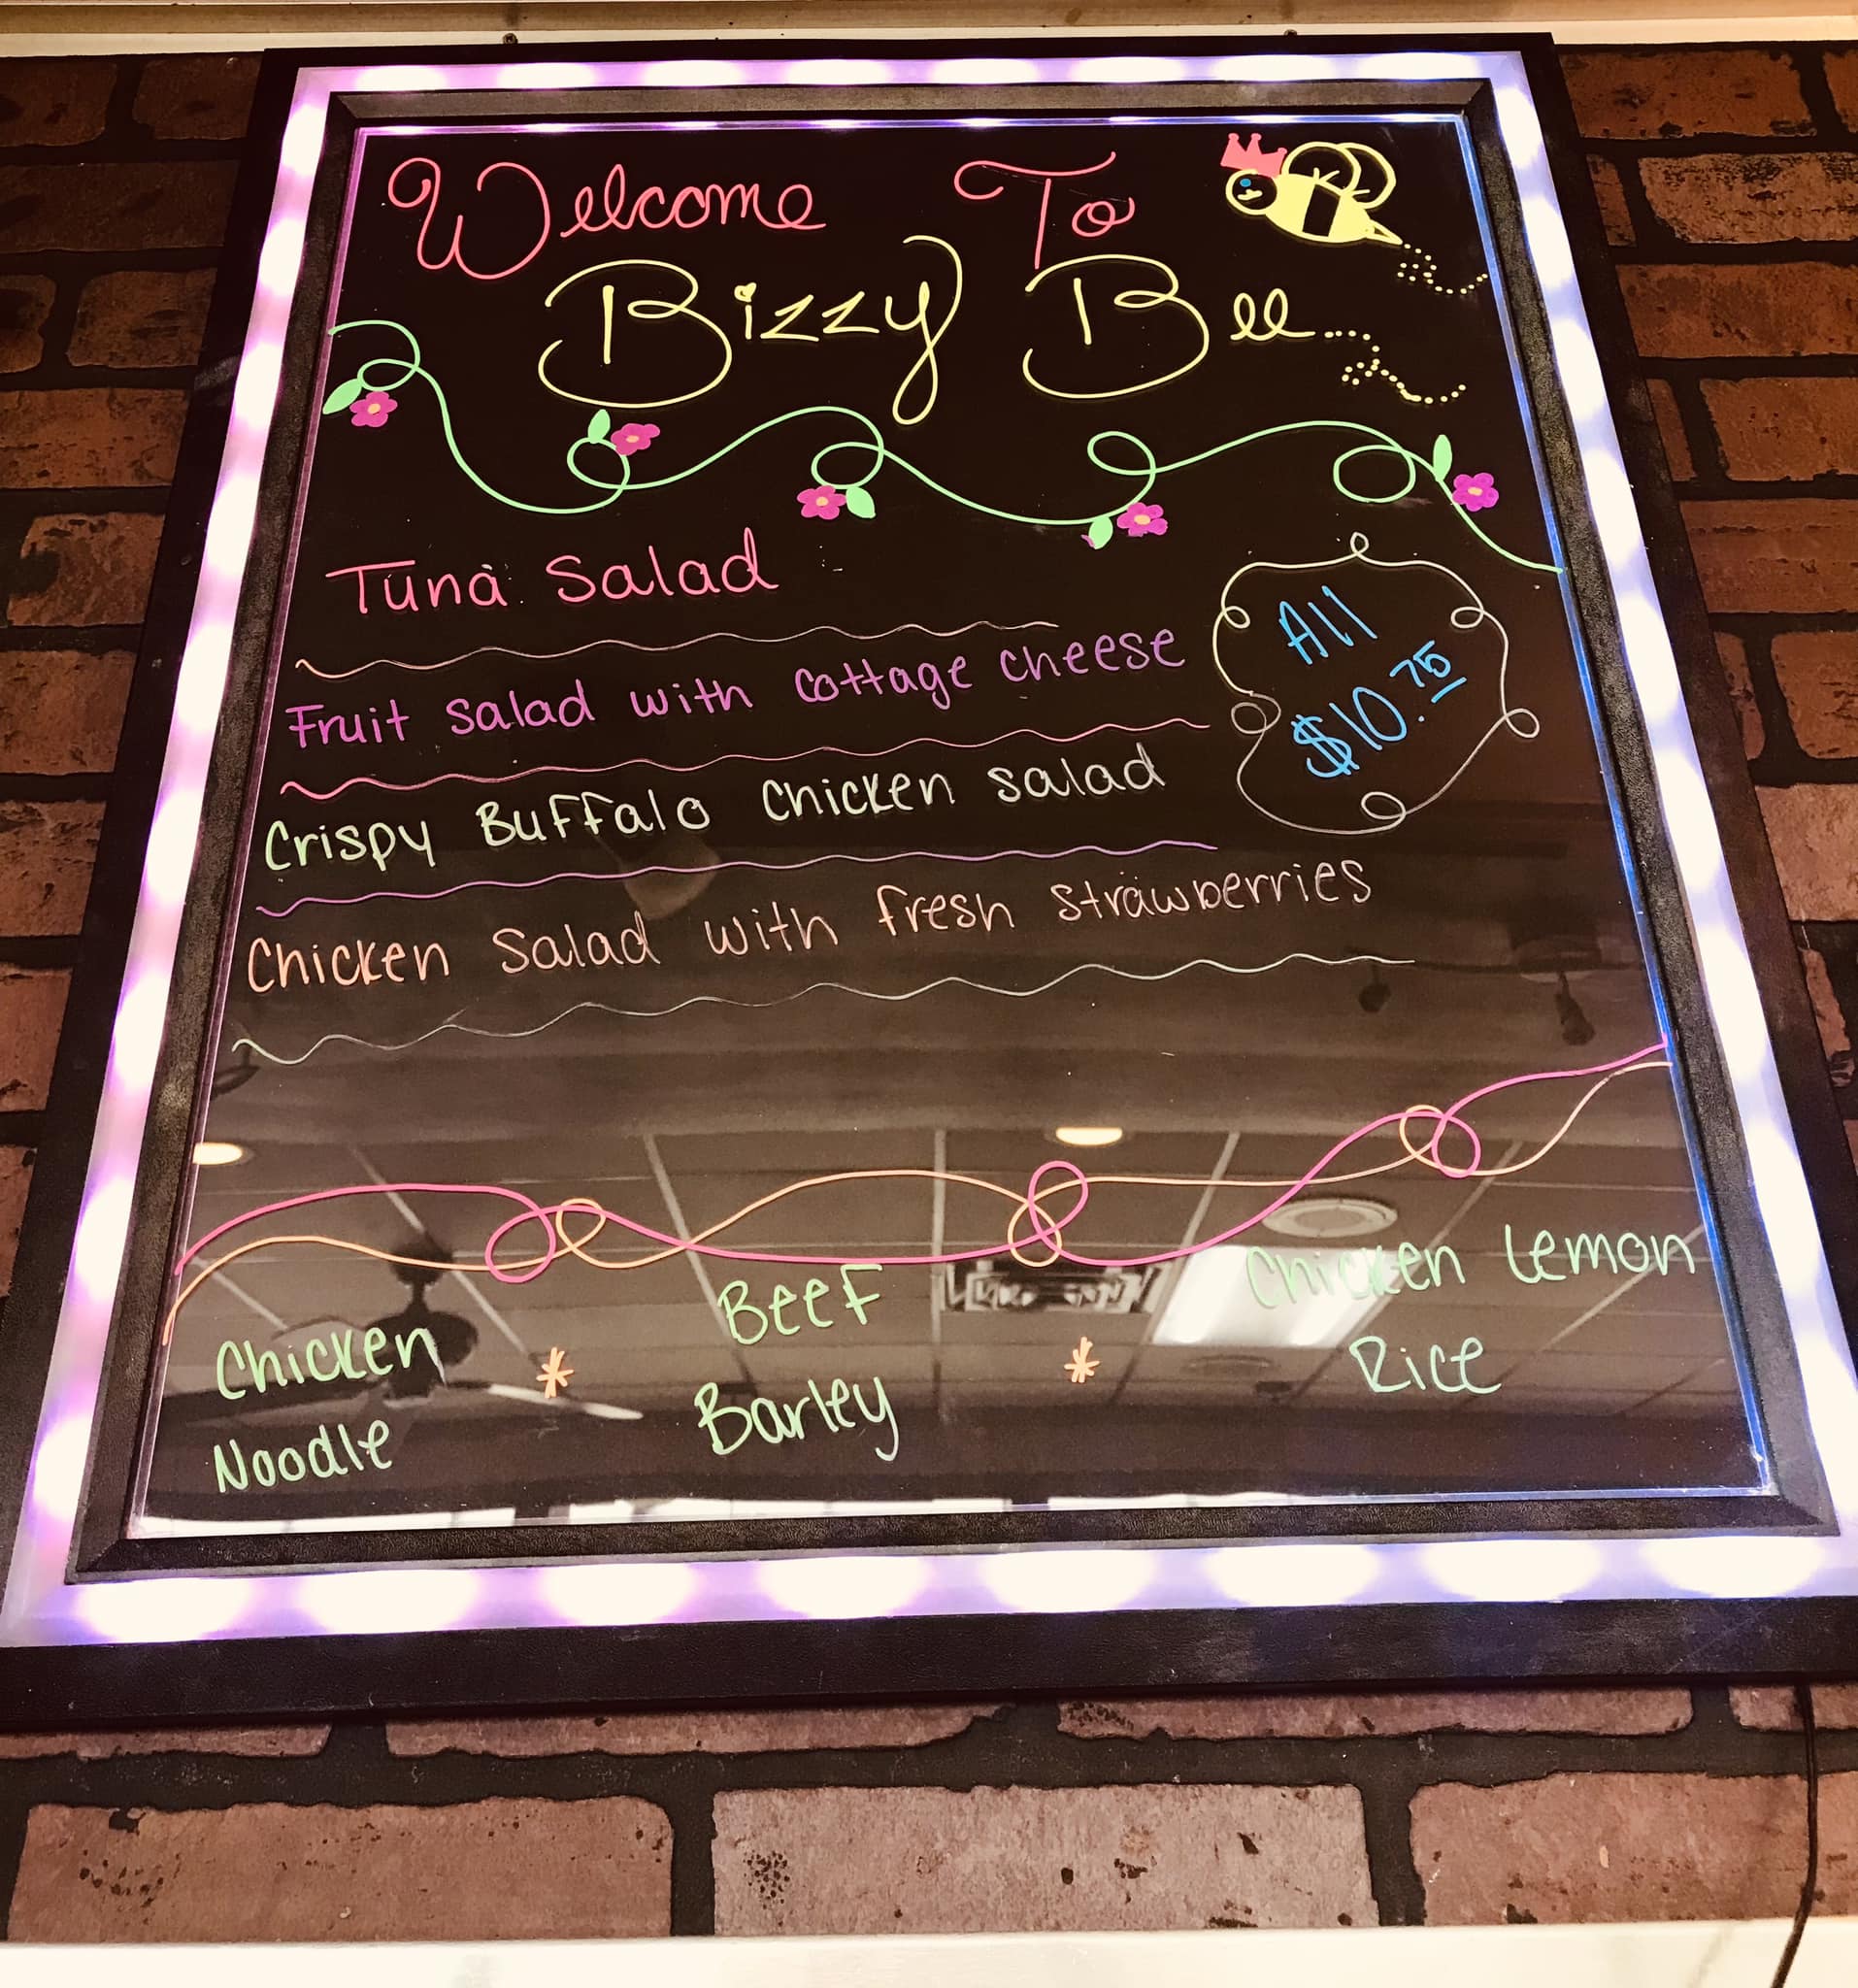 Welcome To
Bizzy Bee
Tuna Salad
Fruit salad with cottage cheese
All
$10.75
Crispy Buffalo Chicken salad
Chicken Salad with fresh strawberries
Chicken
Noodle
*
Beef
Barley
*
Chicken Lemon
Rice